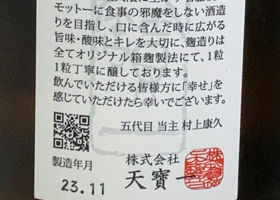 モットーに食事の邪魔をしない酒造
りを目指し、口に含んだ時に広がる
旨味・酸味とキレを大切に、麹造りは
全てオリジナル箱麹製法にて、1粒
1粒丁寧に醸しております。
飲んでいただける皆様方に「幸せ」を
感じていただけたら幸いでございます。
五代目 当主 村上康久
製造年月
23.11
株式会社
天寶一